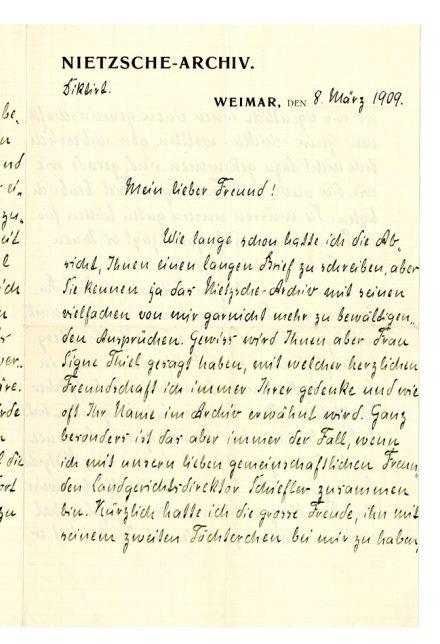 NIETZSCHE-ARCHIV.
Diktirt.
WEIMAR, DEN 8. März 1909.
Mein lieber Freund!
Wie lange schon hatte ich die Ab-
sicht, Ihnen einen langen Brief zu schreiben, aber
Sie kennen ja das Nietzsche-Archiv mit seinen
vielfachen von mir garnicht mehr zu bewältigen-
den Ansprüchen. Gewiss wird Ihnen aber Frau
Signe Thiel gesagt haben, mit welcher herzlichen
Freundschaft ich immer Ihrer gedenke und wie
oft Ihr Name im Archiv erwähnt wird. Ganz
besonders ist das aber immer der Fall, wenn
ich mit unsern lieben gemeinschaftlichen Freun-
den Landgerichtsdirektor Schiefler zusammen
bin. Kürzlich hatte ich die grosse Freude, ihn mit
seinem zweiten Töchterchen bei mir zu haben,